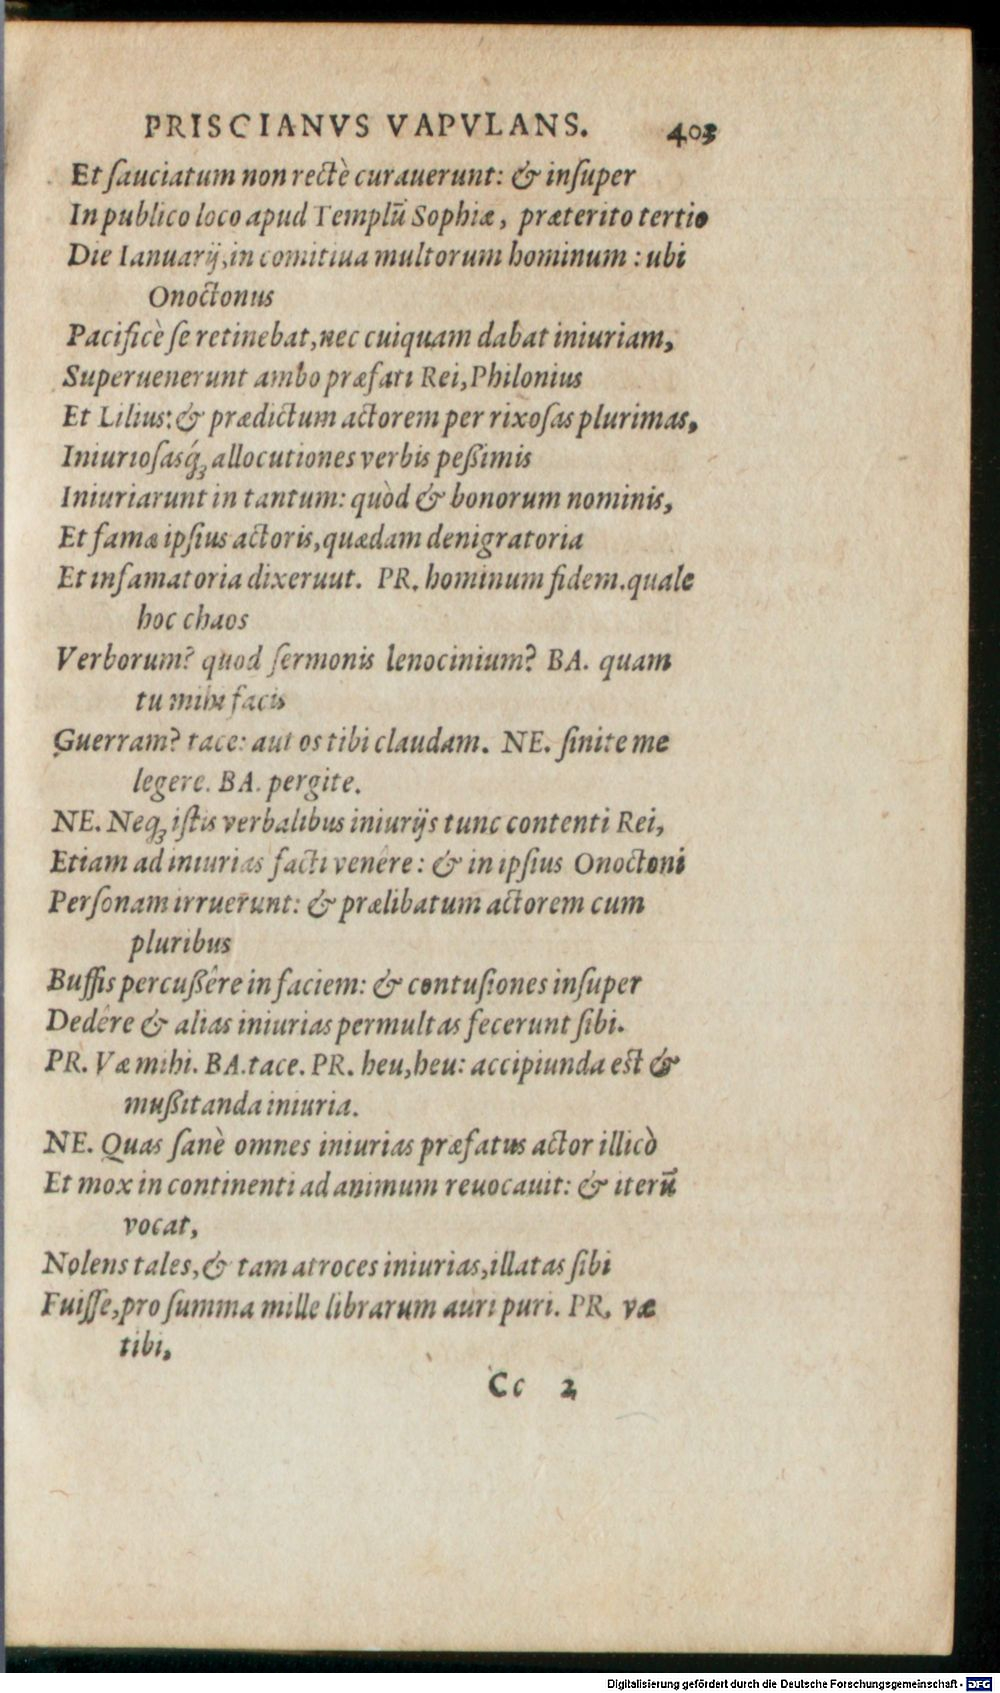 PRISCIANVS VAPVLANS. 403
Et ſauciatum non rectè curauerunt: & inſuper
In publico loco apud Templũ Sophiæ, præterito tertio
Die Ianuarij, in comitiua multorum hominum : ubi
Onoctonus
Pacificè ſe retinebat, nec cuiquam dabat iniuriam,
Superuenerunt ambo præfati Rei, Philonius
Et Lilius: & prædictum actorem per rixoſas plurimas,
Iniurioſasq́ꝫ allocutiones verbis peßimis
Iniuriarunt in tantum: quòd & bonorum nominis,
Et famæ ipſius actoris, quædam denigratoria
Et infamatoria dixeruut. PR. hominum fidem. quale
hoc chaos
Verborum? quod ſermonis lenocinium? BA. quam
tu mihi facis
Guerram? tace: aut os tibi claudam. NE. ſinite me
legere. BA. pergite.
NE. Neqꝫ iſtis verbalibus iniurijs tunc contenti Rei,
Etiam ad iniurias facti venêre : & in ipſius Onoctoni
Perſonam irruerunt: & prælibatum actorem cum
pluribus
Buffis percußêre in faciem: & contuſiones inſuper
Dedêre & alias iniurias permultas fecerunt ſibi.
PR. Væ mihi. BA. tace. PR. heu, heu: accipiunda eſt &
mußitanda iniuria.
NE. Quas ſanè omnes iniurias præfatus actor illicò
Et mox in continenti ad animum reuocauit: & iterũ
vocat,
Nolens tales, & tam atroces iniurias, illatas ſibi
Fuiſſe, pro ſumma mille librarum auri puri. PR. væ
tibi,
Cc 2
Digitalisierung gefördert durch die Deutsche Forschungsgemeinschaft - DFG